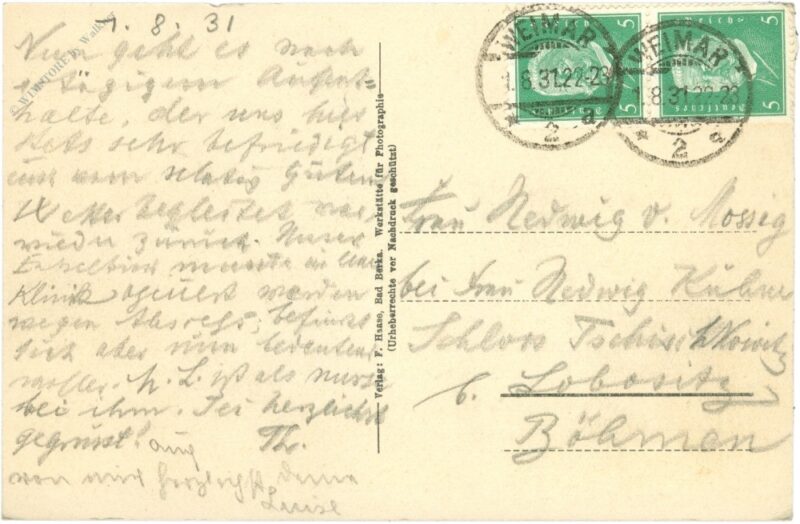 1.8.31
Nun geht es nach
tägigem Aufent
halte, der uns hier
stets sehr befriedigt
und vom gutem
Wetter begleitet war
wieder zurück. Unser
wurde in
Klinik operiert worden
wegen Abscess, befindet
sich aber nun bedeutend
wohler. h. L. ist als
bei ihm. Sei herzlichst
gegrüsst! Th.
auch
von mir herzlichst Deine
Luise
© WIMSTORE by
Verlag: F. Haase, Bad Berka. Werkstätte für Photographie
(Urheberrechte vor Nachdruck geschützt)
WEIMAR
1.8.31.22-23
* 2 a
WEIMAR
1.8.31.22-23
* 2 a
5 Deutsches Reich 5
5 Deutsches Reich 5
Frau Hedwig v. Mossig
bei Frau Hedwig Kühne
Schloss Tschischkowitz
b. Lobositz
Böhmen